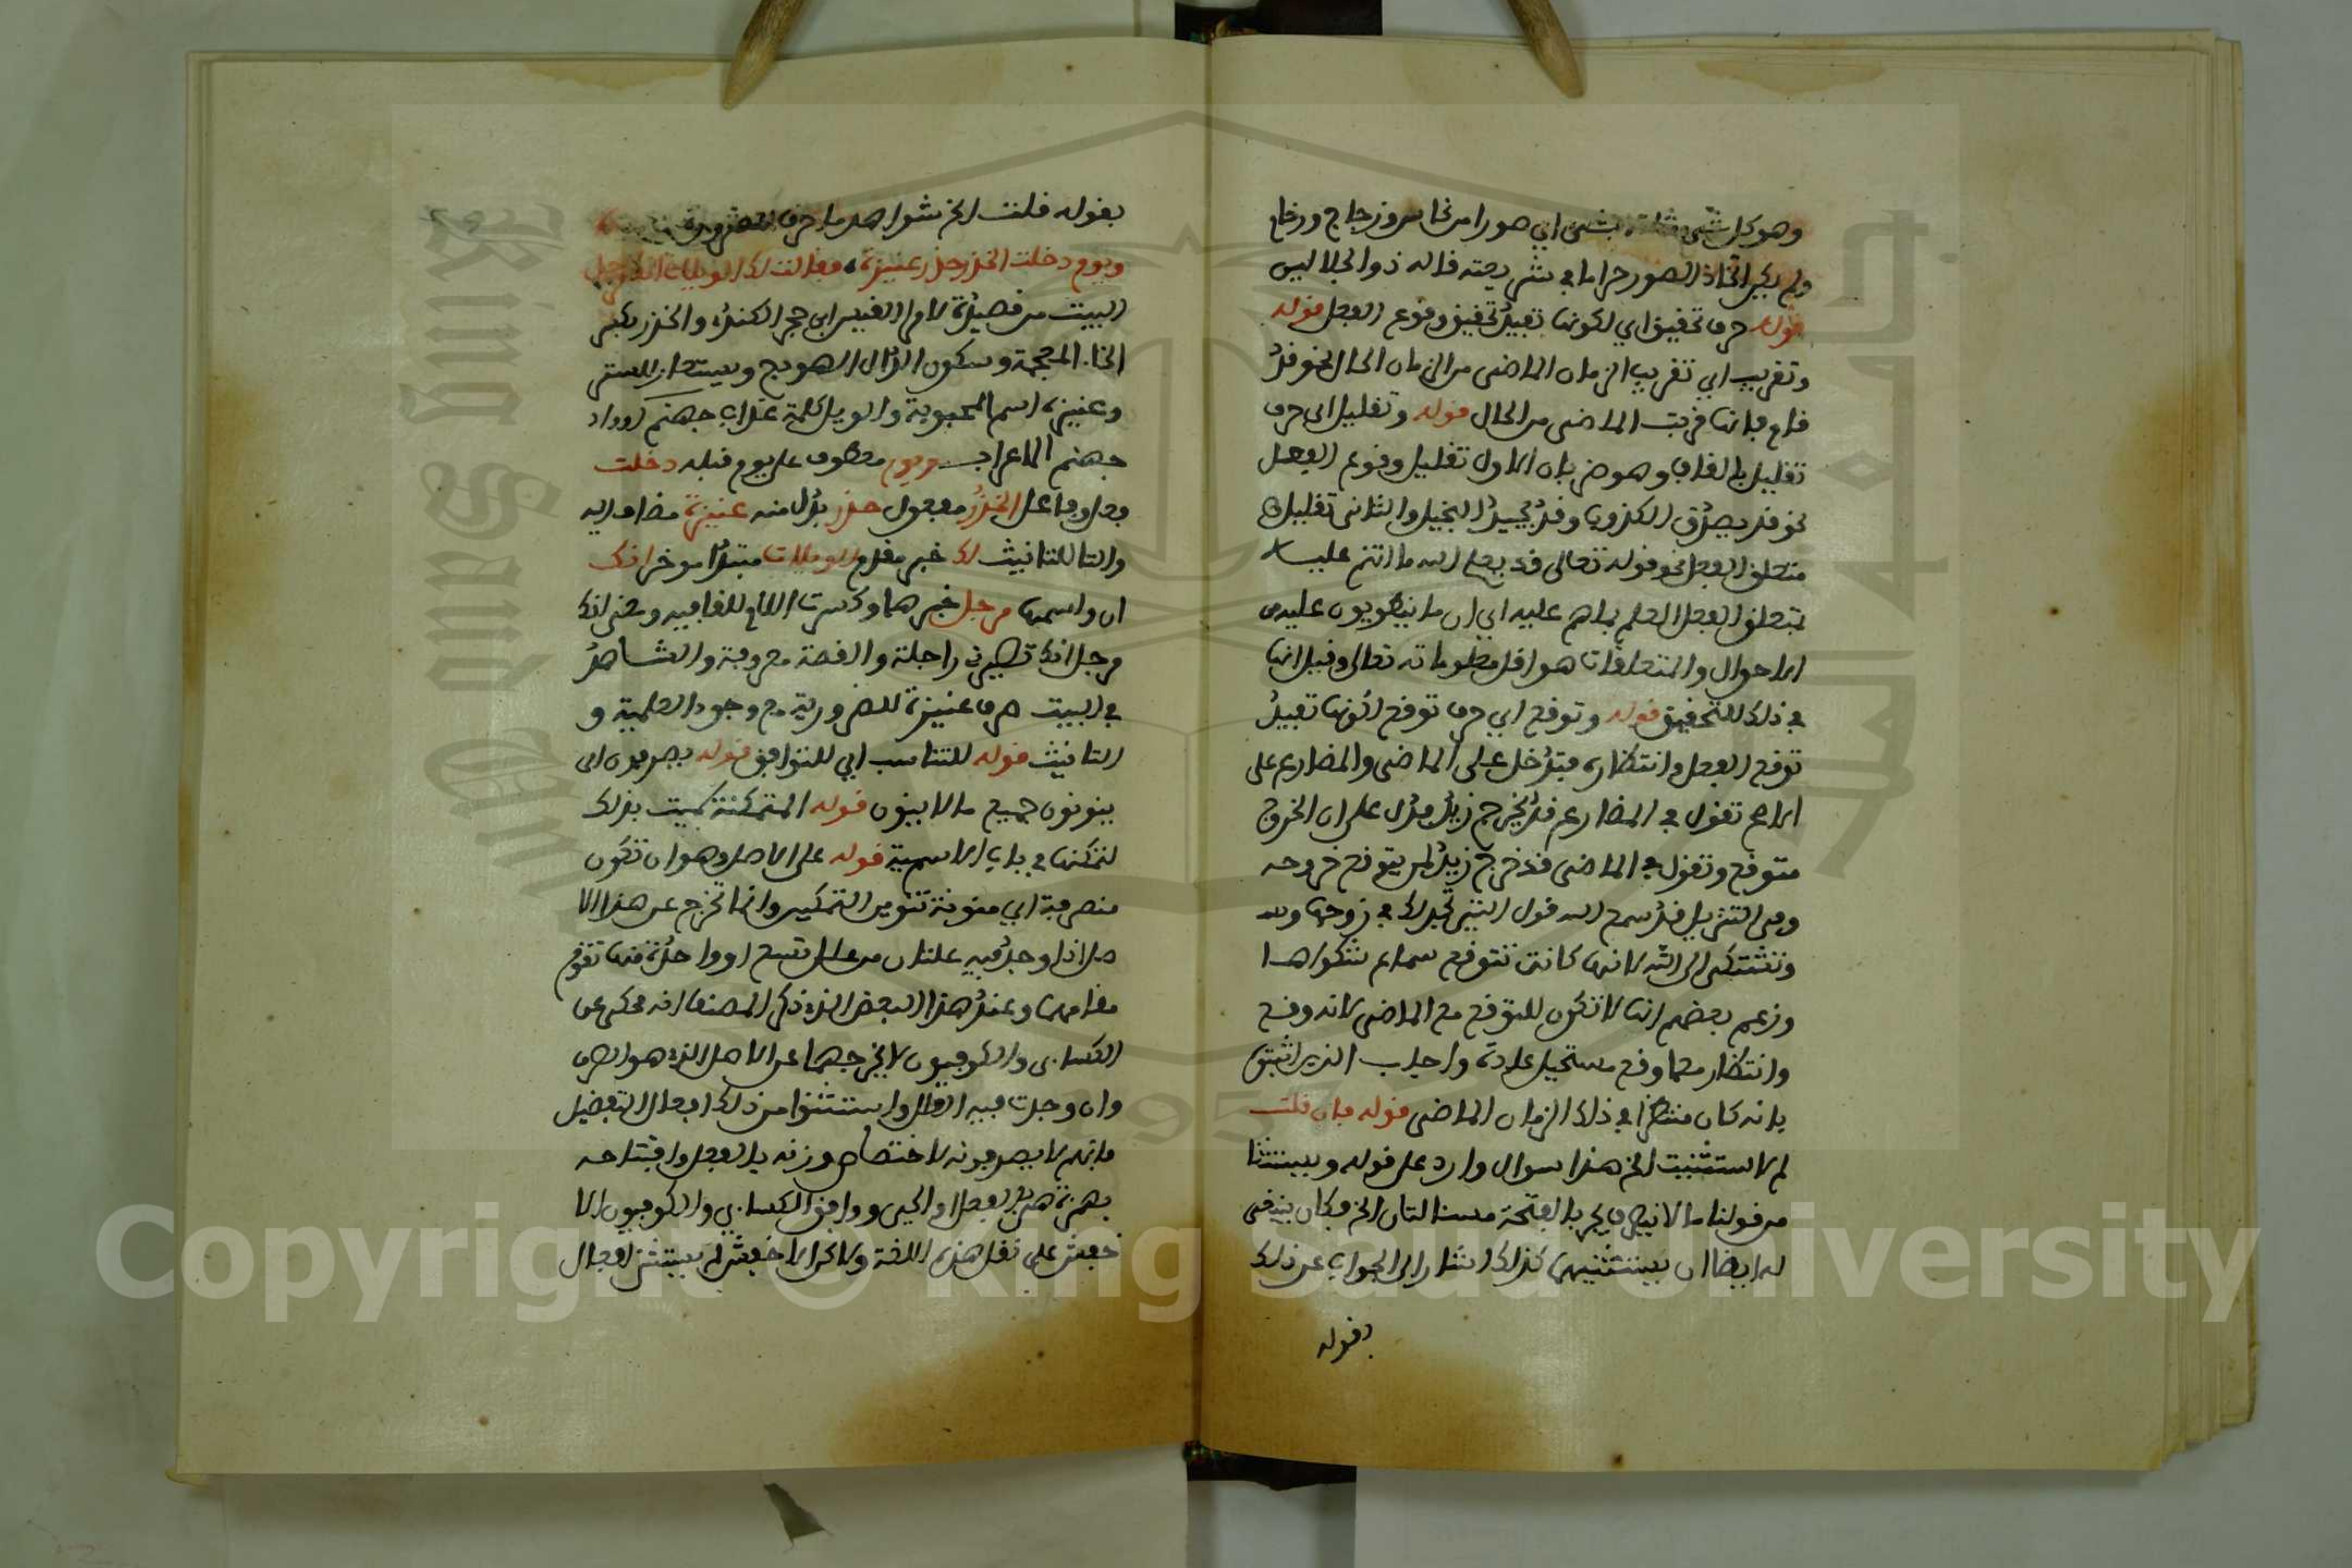 وهو كل شيء بشيء اي صورا من نحاس وزجاج ورخام
ولم يكن اتخاذ الصور حراما في شريعته قاله ذو الجلالين
قوله حرف تحقيق اي لكونها تفيد تحقيق وقوع الفعل قوله
وتقريب اي تقريب الزمان الماضي من الزمان الحال نحو قد
قام فانها قربت الماضي من الحال قوله وتقليل اي حرف
تقليل بالقاف وهو ضربان الاول تقليل وقوع الفعل
نحو قد يصدق الكذوب وقد يجود البخيل والثاني تقليل
متعلق الفعل نحو قوله تعالى قد يعلم الله ما انتم عليه
فتعلق الفعل العلم بما هم عليه اي ان ما ينطوون عليه من
الاحوال والمتعلقات هو اقل معلوماته تعالى وقيل انها
في ذلك للتحقيق قوله وتوقع اي حرف توقع لكونها تفيد
توقع الفعل وانتظاره فتدخل على الماضي والمضارع على
الاصح تقول في المضارع قد يخرج زيد فدل على ان الخروج
متوقع وتقول في الماضي قد خرج زيد لمن يتوقع خروجه
وفي التنزيل قد سمع الله قول التي تجادلك في زوجها
وتشتكي الى الله لانها كانت تتوقع سماع شكواها
وزعم بعضهم انها لا تكون للتوقع مع الماضي لانه وقع
وانتظار ما وقع مستحيل عادة واجاب الذين اثبتوه
بانه كان منتظرا في ذلك الزمان الماضي قوله فان قلت
لم لا استثنيت الخ هذا سوال وارد على قوله ويستثنا
من قولنا ما لا ينصرف يجر بالفتحة مسئالتان الخ فكان ينبغي
له ايضا ان يستثنيهما كذلك اشار الى الجواب عن ذلك
بقوله
بقوله قلت الخ شواهد ما حرف
ويوم دخلت الخدر خدر عنيزة فقالت لك الويلات انك مرجلي
البيت من قصيدة لامرئ القيس ابن حجر الكندي والخدر بكسر
الخاء المعجمة وسكون الدال الهودج ويستعار للستر
وعنيزة اسم المحبوبة والويل كلمة عذاب جهنم او واد
جهنم الاعراب ويوم معطوف على يوم قبله دخلت
فعل وفاعل الخدر مفعول خدر بدل منه عنيزة مضاف اليه
والتا للتانيث لك خبر مقدم الويلات مبتدا موخر انك
ان واسمها مرجل خبرها وكسرت اللام للقافية ومعنى انك
مرجل انك تصيرني راجلة والقصة معروفة والشاهد
في البيت صرف عنيزة للضرورية مع وجود العلمية و
التانيث قوله للتناسب اي للتوافق قوله يصرفون اي
ينونون جميع ما لا ينون قوله المتمكنة سميت بذلك
لتمكنها في باب الاسمية قوله على الاصل وهو ان تكون
منصرفة اي منونة تنوين التمكين وانما تخرج عن هذا الا
صل اذا وجد فيه علتان من علل تسع او واحدة منها تقوم
مقامهما وعند هذا البعض الذي ذكر المصنف انه محكي عن
الكسائي والكوفيون لا يخرجها عن الاصل الذي هو الصرف
وان وجدت فيه العلل واستثنوا من ذلك افعال التفضيل
فانهم لا يصرفونه لاختصاص وزنه بالفعل وافتتاحه
بهمزة هي بالفعل اولى ووافق الكسائي والكوفيون الا
خفش على نقل هذه اللغة ولاكن الاخفش لم يستثن افعال
Copyright © King Saud University